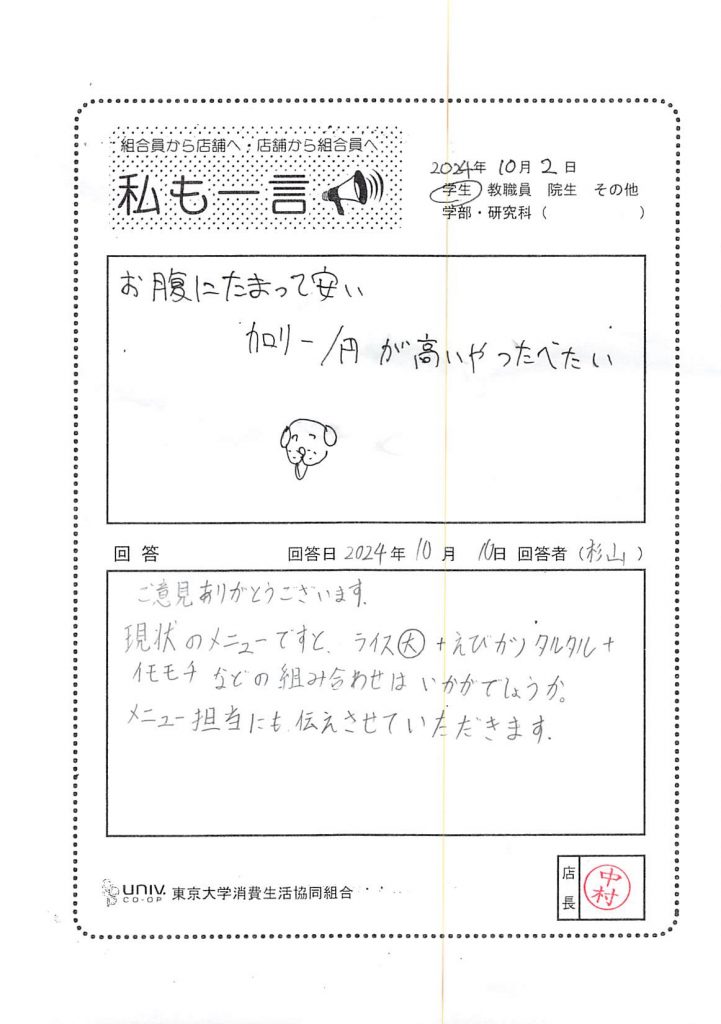 組合員から店舗へ・店舗から組合員へ
私も一言
2024年 10月 2日
学生 教職員 院生 その他
学部・研究科（ ）
お腹にたまって安い
カロリー/円 が高いやつたべたい
回答 回答日 2024年 10月 10日 回答者（杉山）
ご意見ありがとうございます。
現状のメニューですと、ライス大+えびカツタルタル+
イモモチ などの組み合わせは いかがでしょうか。
メニュー担当にも伝えさせていただきます。
UNIV. CO-OP 東京大学消費生活協同組合
店長 中村